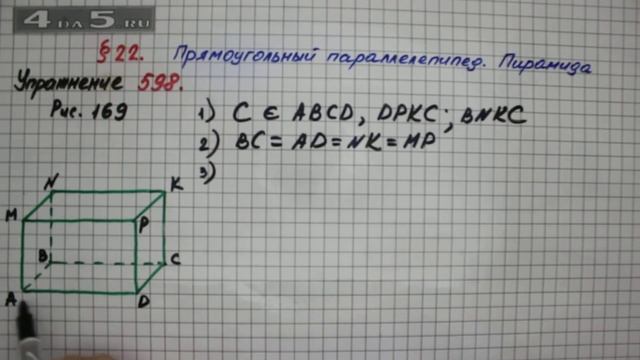 4 DA 5.RU
§ 22. Прямоугольный параллелепипед. Пирамида
Упражнение 598.
Рис. 169
1) C ∈ ABCD, DPKC; BNKC
2) BC = AD = NK = MP
3)
N
K
M
P
B
C
A
D